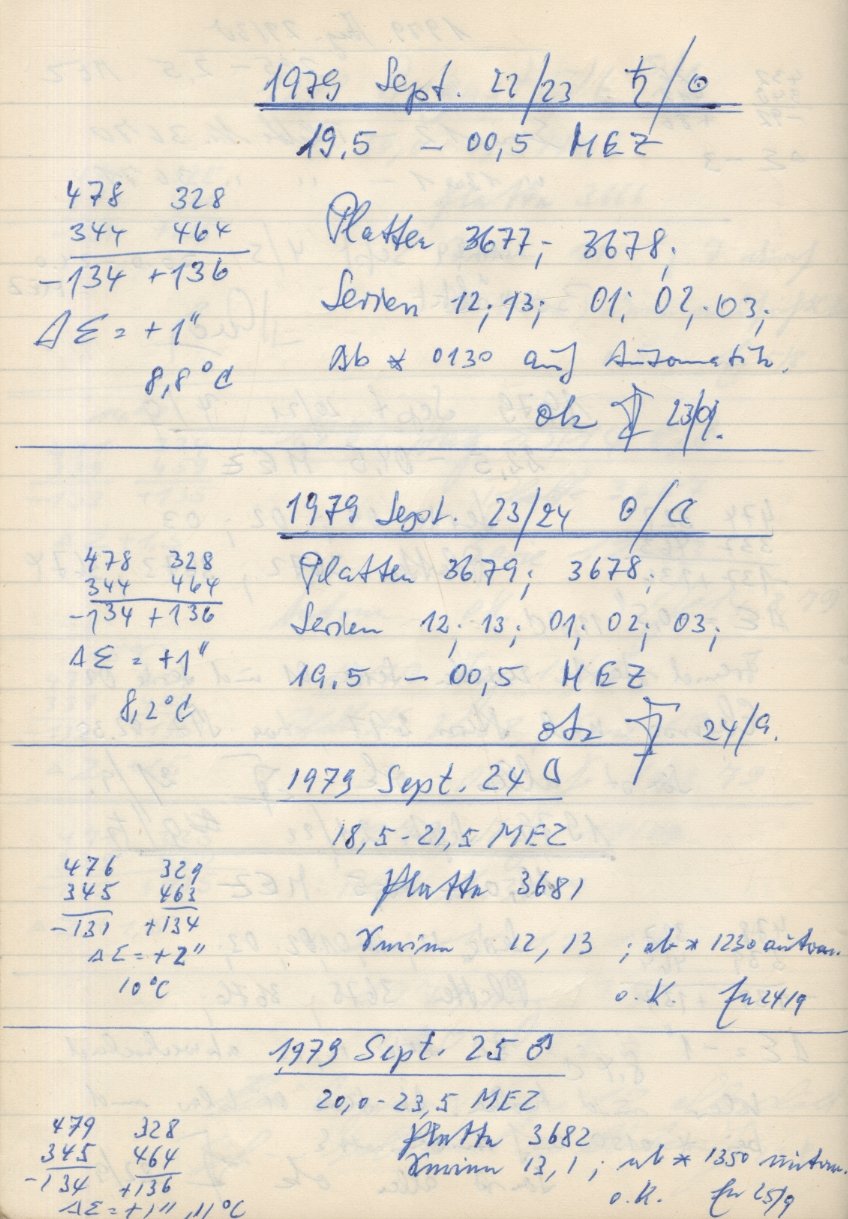 1979 Sept. 22/23 ♄/☉
19.5 – 00,5 MEZ
478 328
344 464
-134 +136
ΔΣ = +1"
8,8°C
Platten 3677; 3678;
Serien 12; 13; 01; 02; 03;
Ab * 0130 auf Automatik.
ok 23/9.
1979 Sept. 23/24 ☉/☾
478 328
344 464
-134 +136
ΔΣ = +1"
8,2°C
Platten 3679; 3678;
Serien 12; 13; 01; 02; 03;
19.5 – 00,5 MEZ
ok 24/9.
1979 Sept. 24 ☾
18,5-21,5 MEZ
476 329
345 463
-131 +134
ΔΣ = +2"
10°C
Platte 3681
Serien 12, 13 ; ab * 1230 autom.
o.K. 24/9
1979 Sept. 25 ♂
20,0-23,5 MEZ
479 328
345 464
-134 +136
ΔΣ = +1", 11°C
Platte 3682
Serien 13, 1 ; ab * 1350 autom.
o.K. 25/9